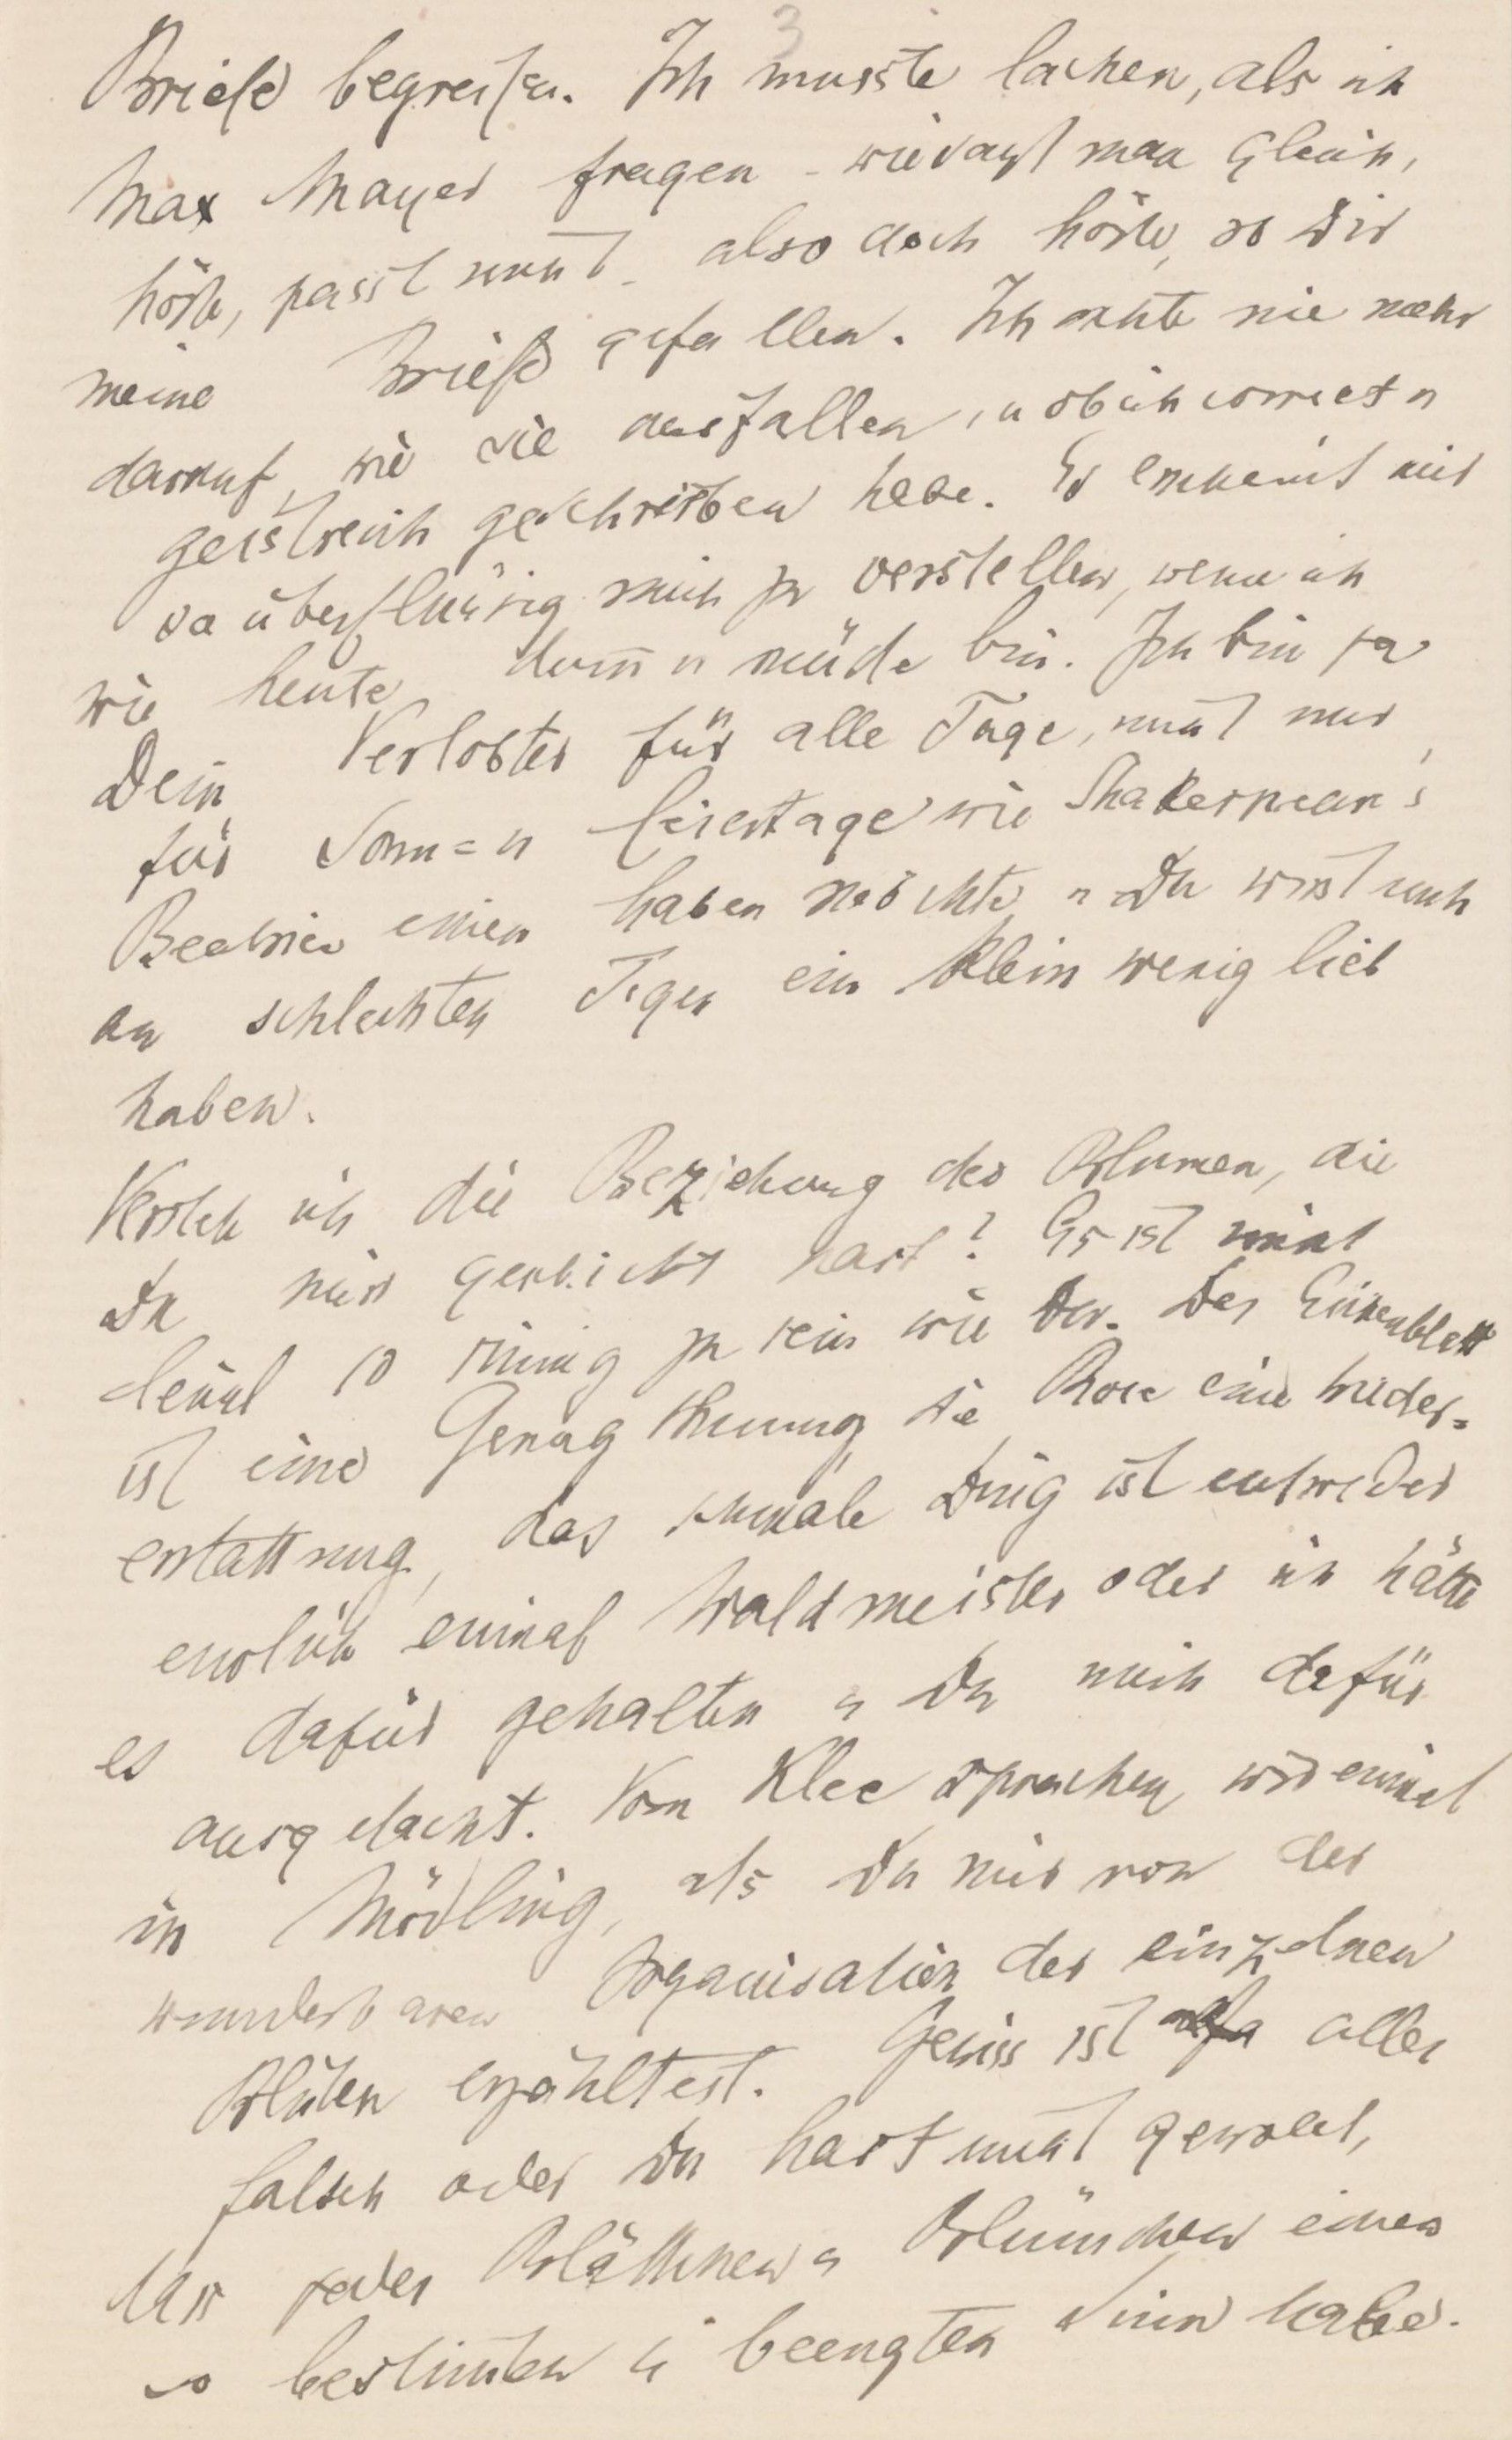 3
Briefe begreifen. Ich musste lachen, als ich
Max Mayer fragen – wie sagt man gleich,
hörte, passt nicht – also doch hörte, ob Dir
meine Briefe gefallen. Ich achte nie mehr
darauf, wie sie ausfallen, u ob ich correct u
geistreich geschrieben habe. Es erscheint mir
so überflüssig mich zu verstellen, wenn ich
wie heute dum̄ u müde bin. Ich bin ja
Dein Verlobter für alle Tage, nicht nur
für Sonn= u Feiertage wie Shakespeare's
Beatrice einen haben möchte u Du wirst mich
an schlechten Tagen ein klein wenig lieb
haben.
Versteh ich die Beziehung der Blumen, die
Du mir geschickt hast? Es ist nicht
leicht so sinnig zu sein wie Du. Das Eichenblatt
ist eine Genugthuung, die Rose eine Wieder=
erstattung, das schmale Ding ist entweder
endlich einmal Waldmeister oder ich hätte
es dafür gehalten u Du mich dafür
ausgelacht. Vom Klee sprachen wir einmal
in Mödling, als Du mir von der
wunderbaren Organisation der einzelnen
Blüten erzähltest. Gewiss ist alles
falsch oder Du hast nicht gewollt,
dass jedes Blättchen u Blümchen einen
so bestim̄ten u beengten Sinn habe.